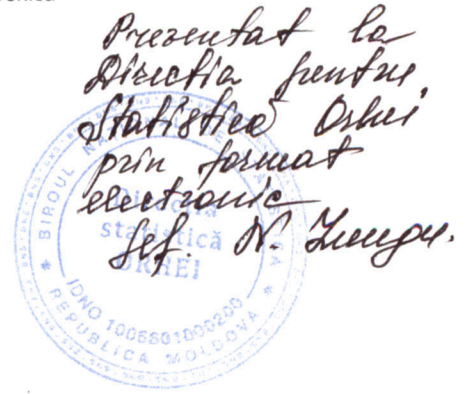 Prezentat la
Direcția pentru
Statistică Orhei
prin format
electronic
Șef. N. Lungu.
BIROUL NAȚIONAL DE STATISTICĂ
Direcția
statistică
ORHEI
IDNO 1006601000200
REPUBLICA MOLDOVA